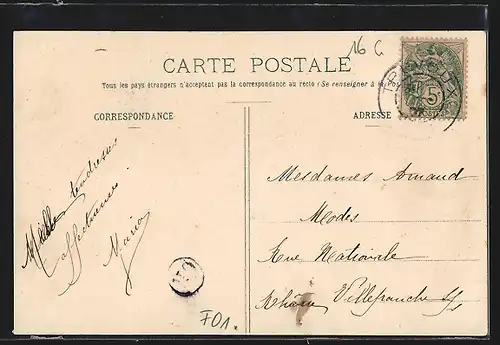 16 C
CARTE POSTALE
Tous les pays étrangers n'acceptent pas la correspondance au recto (Se renseigner à la
CORRESPONDANCE
ADRESSE
5
Mille tendresses
affectueuses
Maria
Mesdames Arnaud
Modes
Rue Nationale
Rhône Villefranche s/s
F01.